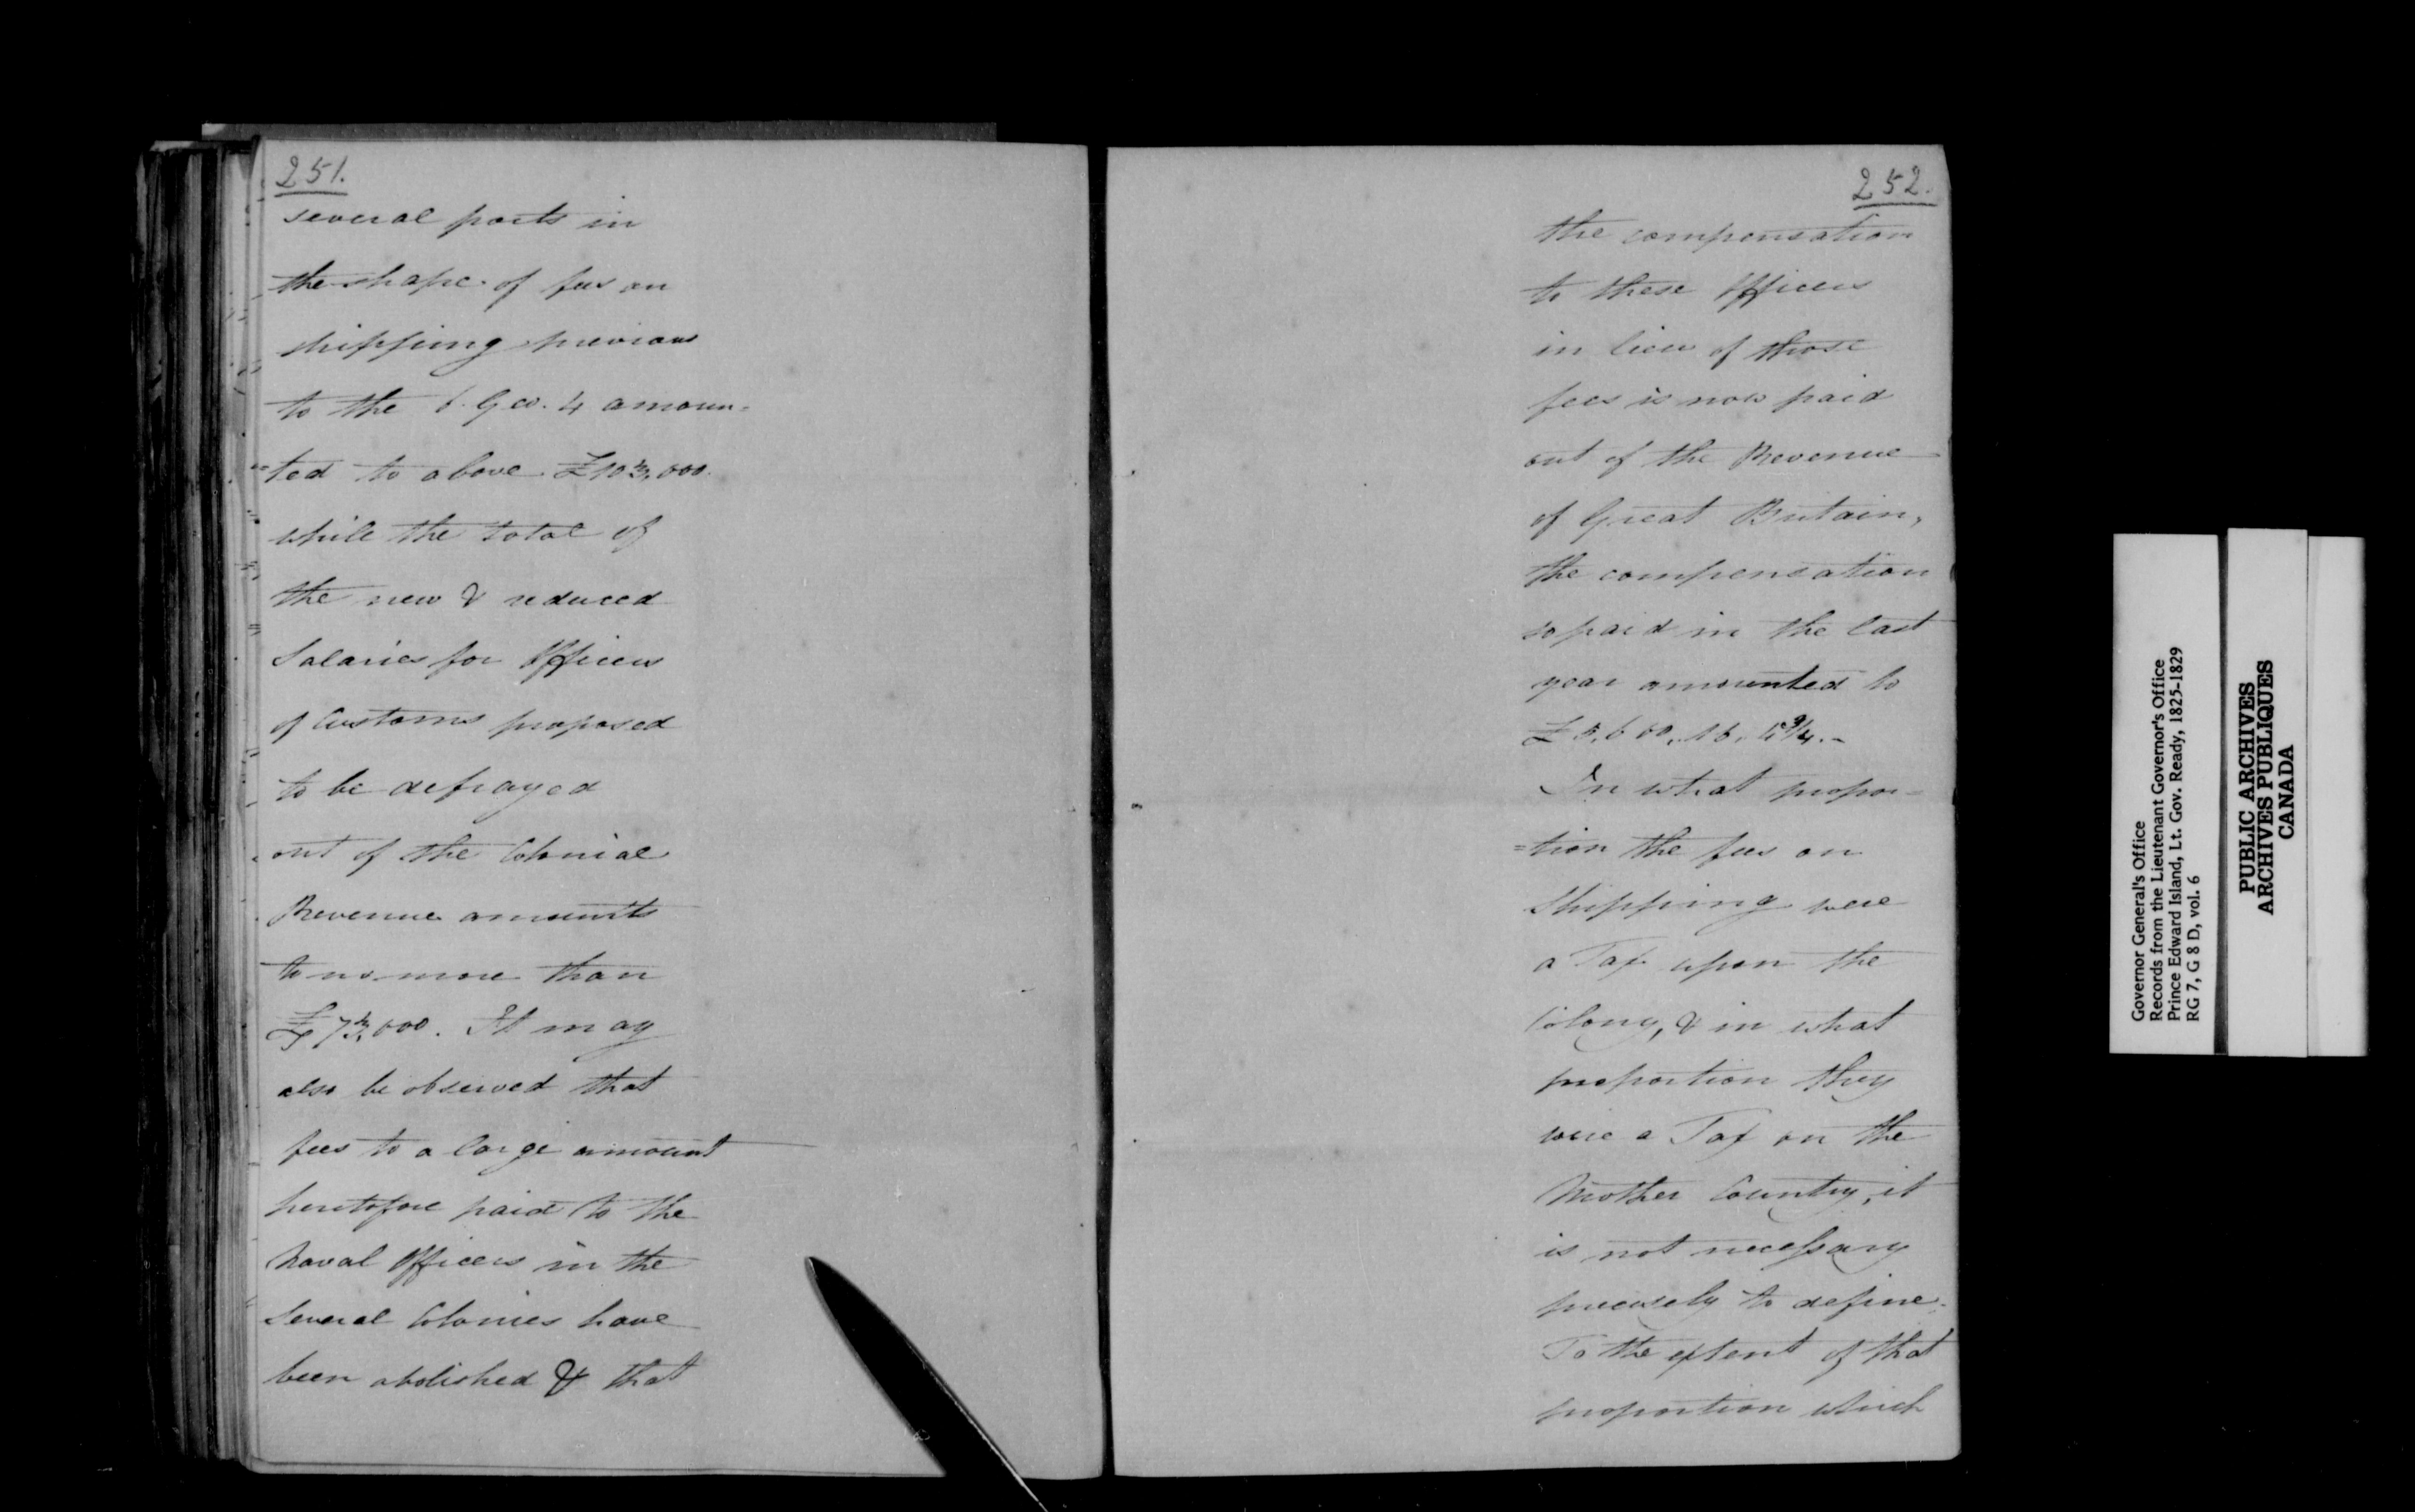 251.
several ports in
the shape of fees on
shipping previous
to the 6. Geo. 4 amoun-
=ted to above £103,000.
while the total of
the new & reduced
Salaries for Officers
of Customs proposed
to be defrayed
out of the Colonial
Revenue amounts
to no more than
£73,000. It may
also be observed that
fees to a large amount
heretofore paid to the
Naval Officers in the
Several Colonies have
been abolished & that
252.
the compensation
to these Officers
in lieu of those
fees is now paid
out of the Revenue
of Great Britain,
the compensation
so paid in the last
year amounted to
£
In what propor-
=tion the fees on
Shipping were
a Tax upon the
Colony, & in what
proportion they
were a Tax on the
Mother Country, it
is not necessary
precisely to define.
To the extent of that
proportion which
Governor General's Office
Records from the Lieutenant Governor's Office
Prince Edward Island, Lt. Gov. Ready, 1825-1829
RG 7, G 8 D, vol. 6
PUBLIC ARCHIVES
ARCHIVES PUBLIQUES
CANADA